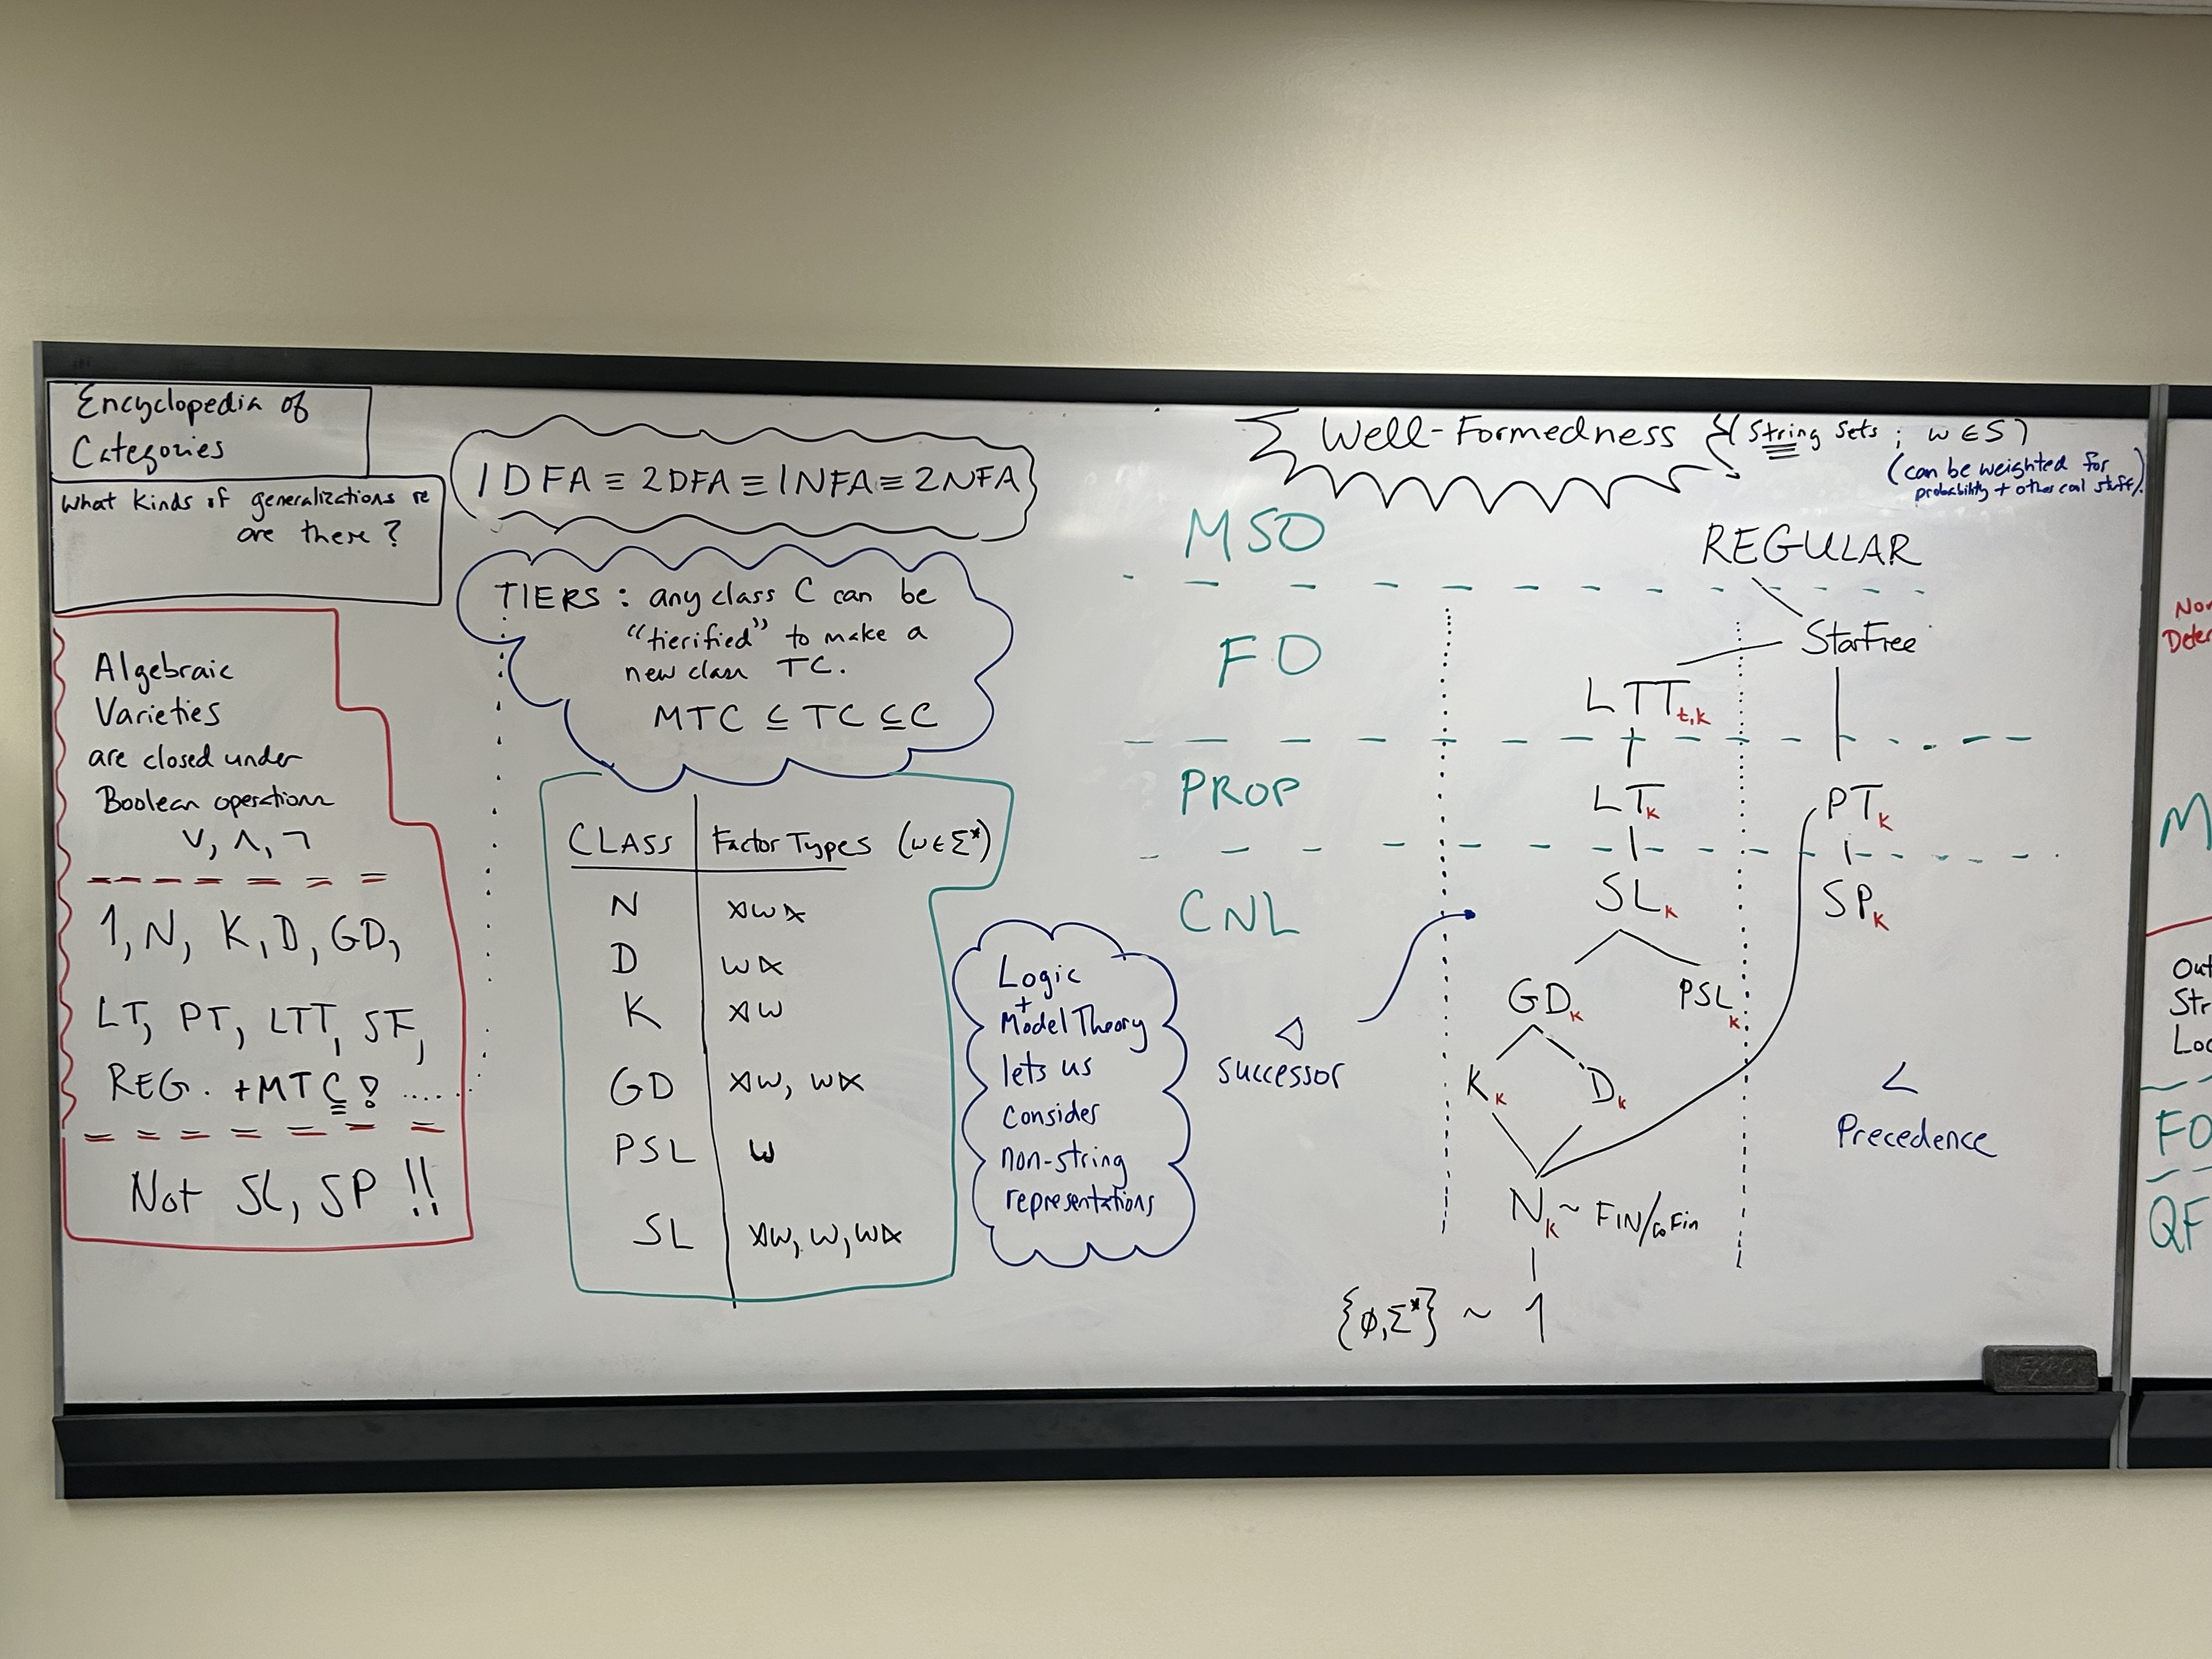 Encyclopedia of
Categories
What kinds of generalizations re
are there?
Algebraic
Varieties
are closed under
Boolean operations
∨, ∧, ¬
1, N, K, D, GD,
LT, PT, LTT, SF,
REG. + MTC !.....
Not SL, SP !!
1DFA ≡ 2DFA ≡ 1NFA ≡ 2NFA
TIERS : any class C can be
"tierified" to make a
new class TC.
MTC ⊆ TC ⊆ C
CLASS Factor Types (w ∈ Σ*)
N ⋊w⋉
D w⋉
K ⋊w
GD ⋊w, w⋉
PSL w
SL ⋊w, w, w⋉
Logic
+
Model Theory
lets us
consider
non-string
representations
Well-Formedness
String Sets ; w ∈ S?
(can be weighted for
probability + other cool stuff).
MSO
REGULAR
FO
StarFree
LTT t,k
PROP
LT k
PT k
CNL
SL k
SP k
GD k
PSL k
◁
successor
K k
D k
<
Precedence
N k ~ FIN/coFin
{∅, Σ*} ~ 1
Deter
M
Out
Str
Loc
FO
QF